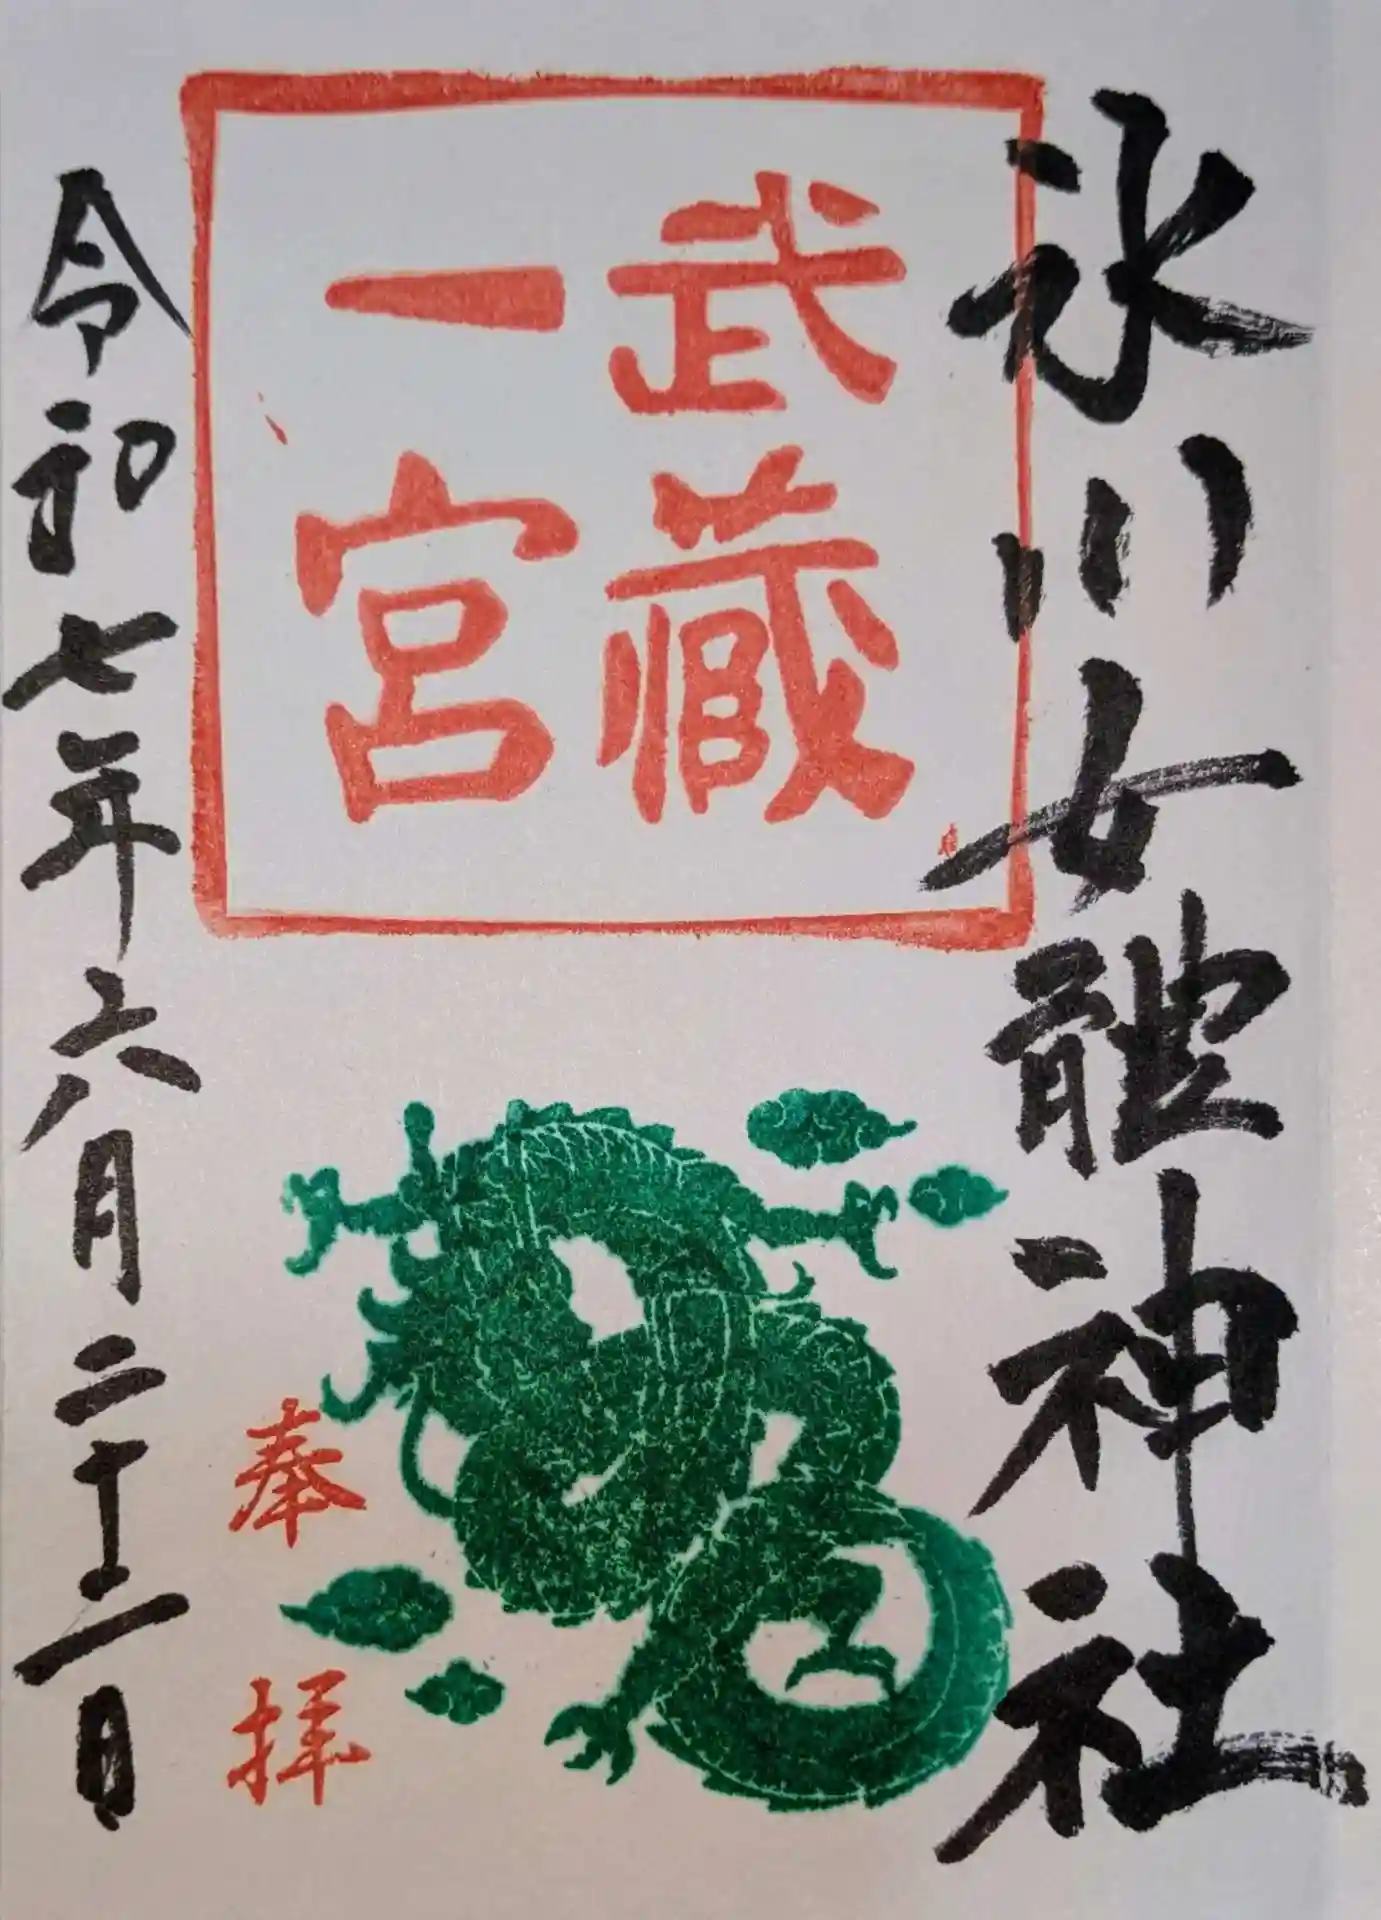 氷川女體神社
武藏
一宮
奉拝
令和七年六月二十二日